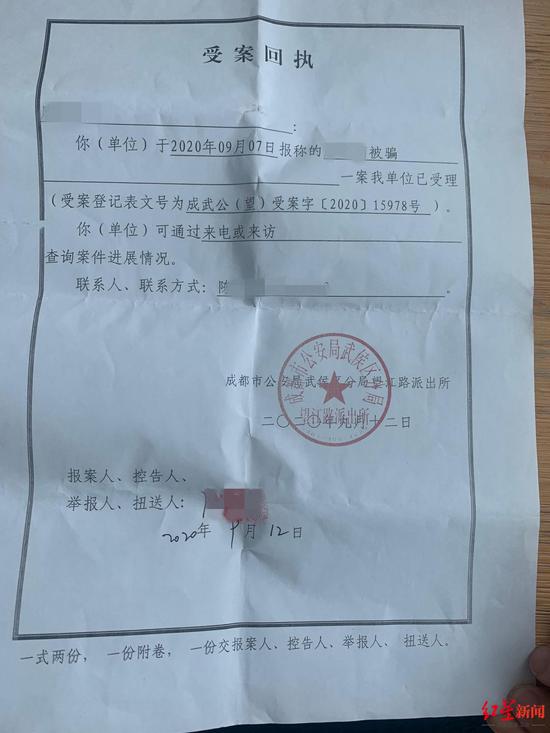 受案回执
:
你(单位)于2020年09月07日报称的 被骗
一案我单位已受理
(受案登记表文号为成武公(望)受案字〔2020〕15978号)。
你(单位)可通过来电或来访
查询案件进展情况。
联系人、联系方式:陈 。
成都市公安局武侯区分局望江路派出所
二〇二〇年九月十二日
成都市公安局武侯区分局
望江路派出所
报案人、控告人、
举报人、扭送人:
2020年 9月 12日
一式两份,一份附卷,一份交报案人、控告人、举报人、扭送人。
红星新闻